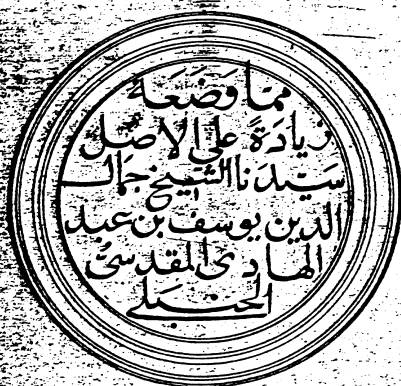 مما وضعه
زيادة على الأصل
سيدنا الشيخ جمال
الدين يوسف بن عبد
الهادى المقدسىُّ
الحنبلى